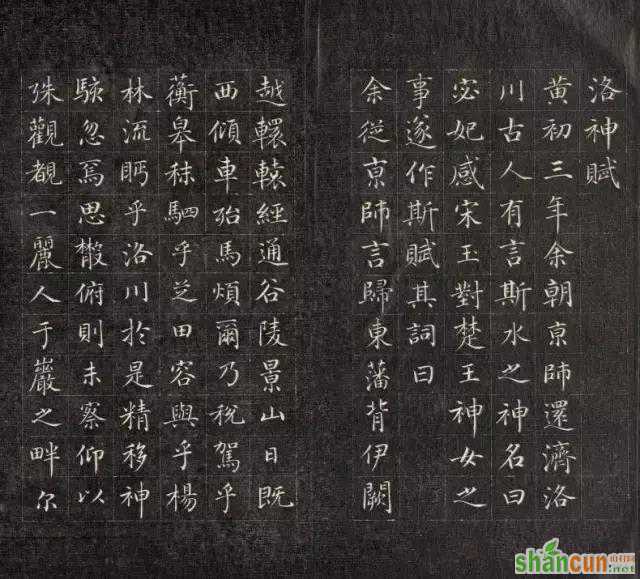 洛神賦
黄初三年余朝京師還濟洛
川古人有言斯水之神名曰
宓妃感宋王對楚王神女之
事遂作斯賦其詞曰
余從京師言歸東藩背伊闕
越轘轅經通谷陵景山日既
西傾車殆馬煩爾乃税駕乎
蘅皋秣駟乎芝田容與乎楊
林流眄乎洛川於是精移神
駭忽焉思散俯則未察仰以
殊觀覩一麗人于巖之畔尔
shancun
山村网
.net